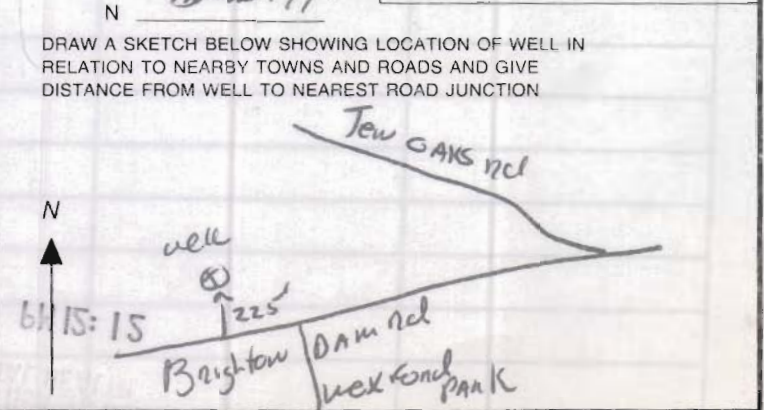 N
DRAW A SKETCH BELOW SHOWING LOCATION OF WELL IN
RELATION TO NEARBY TOWNS AND ROADS AND GIVE
DISTANCE FROM WELL TO NEAREST ROAD JUNCTION
Ten OAKS rd
N
well
225'
Brighton DAM rd
PARK